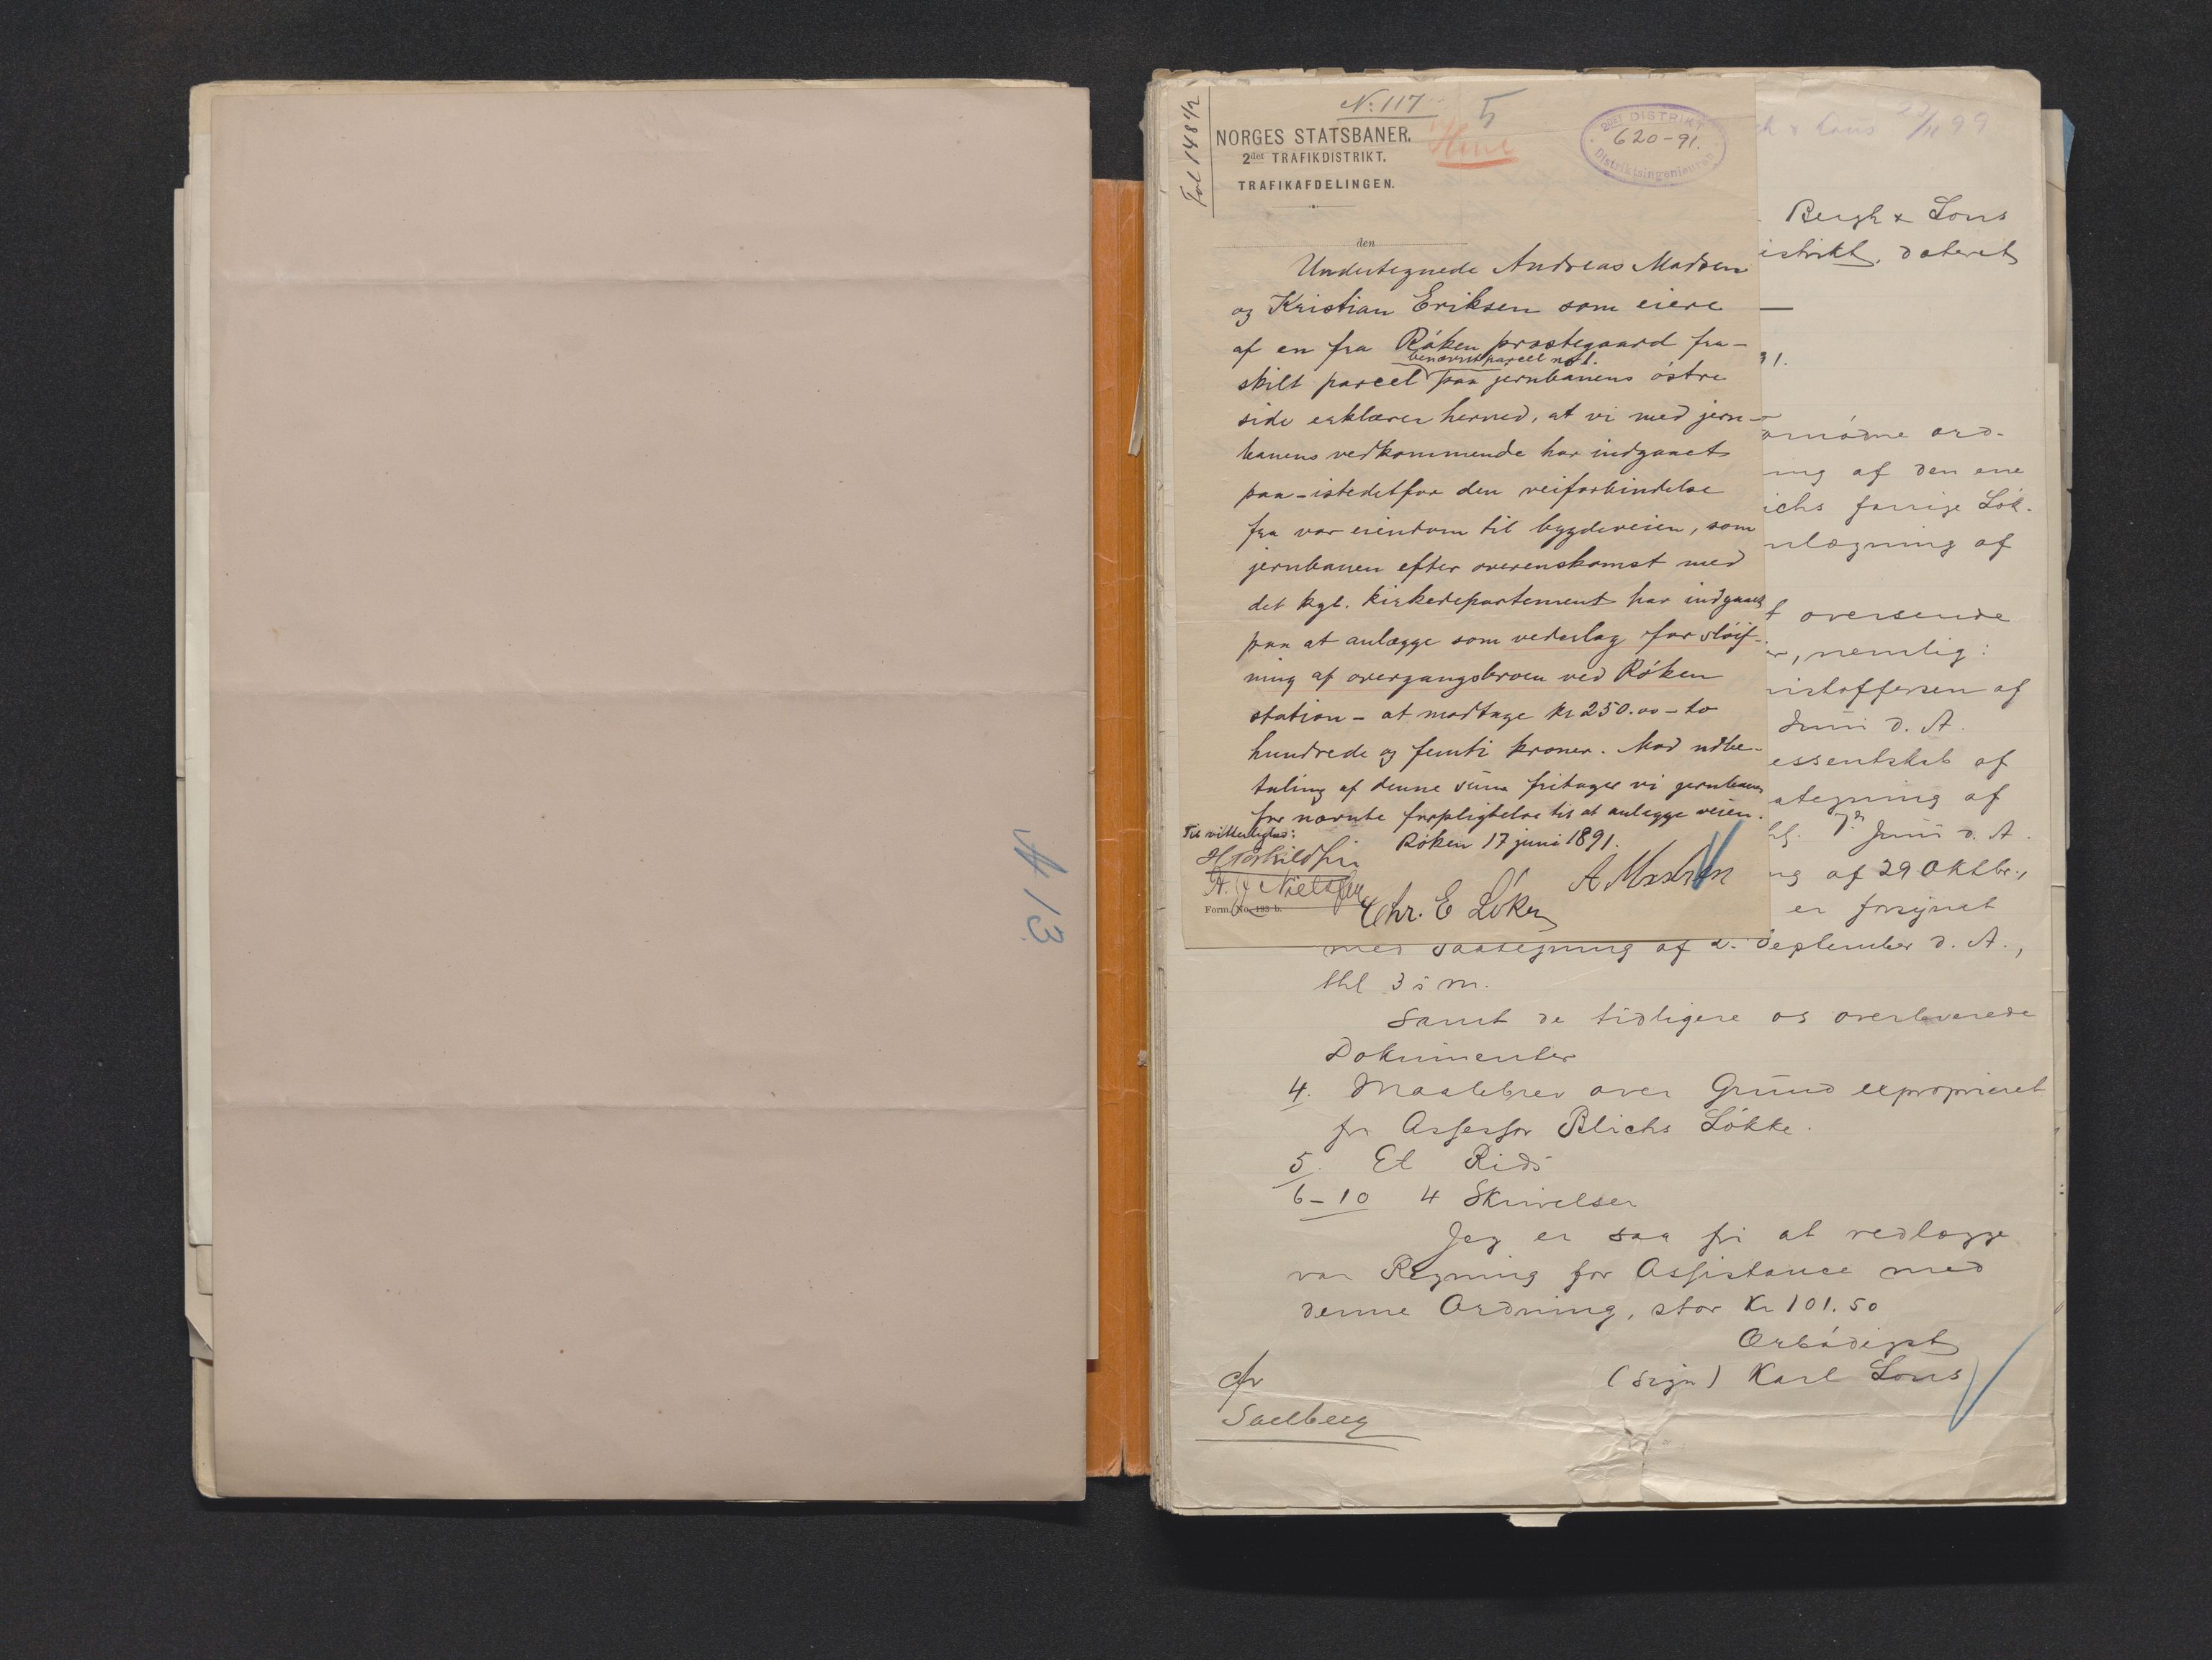 A 13.
Fol 148 1/2
N: 117
5
NORGES STATSBANER.
2det TRAFIKDISTRIKT.
TRAFIKAFDELINGEN.
2det DISTRIKT
620-91.
Distriktsingeniøren
den
Undertegnede Andreas Madsen
og Kristian Eriksen som eiere
af en fra Røken præstegaard fra-
benævnt parcel no 1.
skilt parcel paa jernbanens østre
side erklærer herved, at vi med jern-
banens vedkommende har indgaaet
paa - istedetfor den veiforbindelse
fra vor eiendom til bygdeveien, som
jernbanen efter overenskomst med
det kgl. kirkedepartement har indgaaet
paa at anlægge som vederlag for sløif-
ning af overgangsbroen ved Røken
station - at modtage kr 250.00 - to
hundrede og femti kroner. Mod udbe-
taling af denne sum fritager vi jernbanen
for nævnte forpligtelse til at anlægge veien.
Til vitterlighed:
Røken 17 juni 1891.
A Madsen
Chr. E Løken
Form. No. 193 b.
22/11 99
Bergh & Lous
istrikt, dateret
91.
ornødne ord-
ing af den ene
ichs forrige Løk-
nlægning af
t oversende
er, nemlig:
ristoffersen af
Juni d. A.
essentskab af
ategning af
hl. 7de Juni d. A.
ng af 29 Oktbr.,
er forsynet
med Paategning af 2. September d. A.,
thl 3 s m.
Samt de tidligere os overleverede
Dokumenter
4. Maalebrev over Grund exproprieret
fr Assessor Blichs Løkke.
5. Et Rids
6-10 4 Skrivelser
Jeg er saa fri at vedlægge
vor Regning for Assistance med
denne Ordning, stor Kr 101.50
Ærbødigst
(sign) Karl Lous